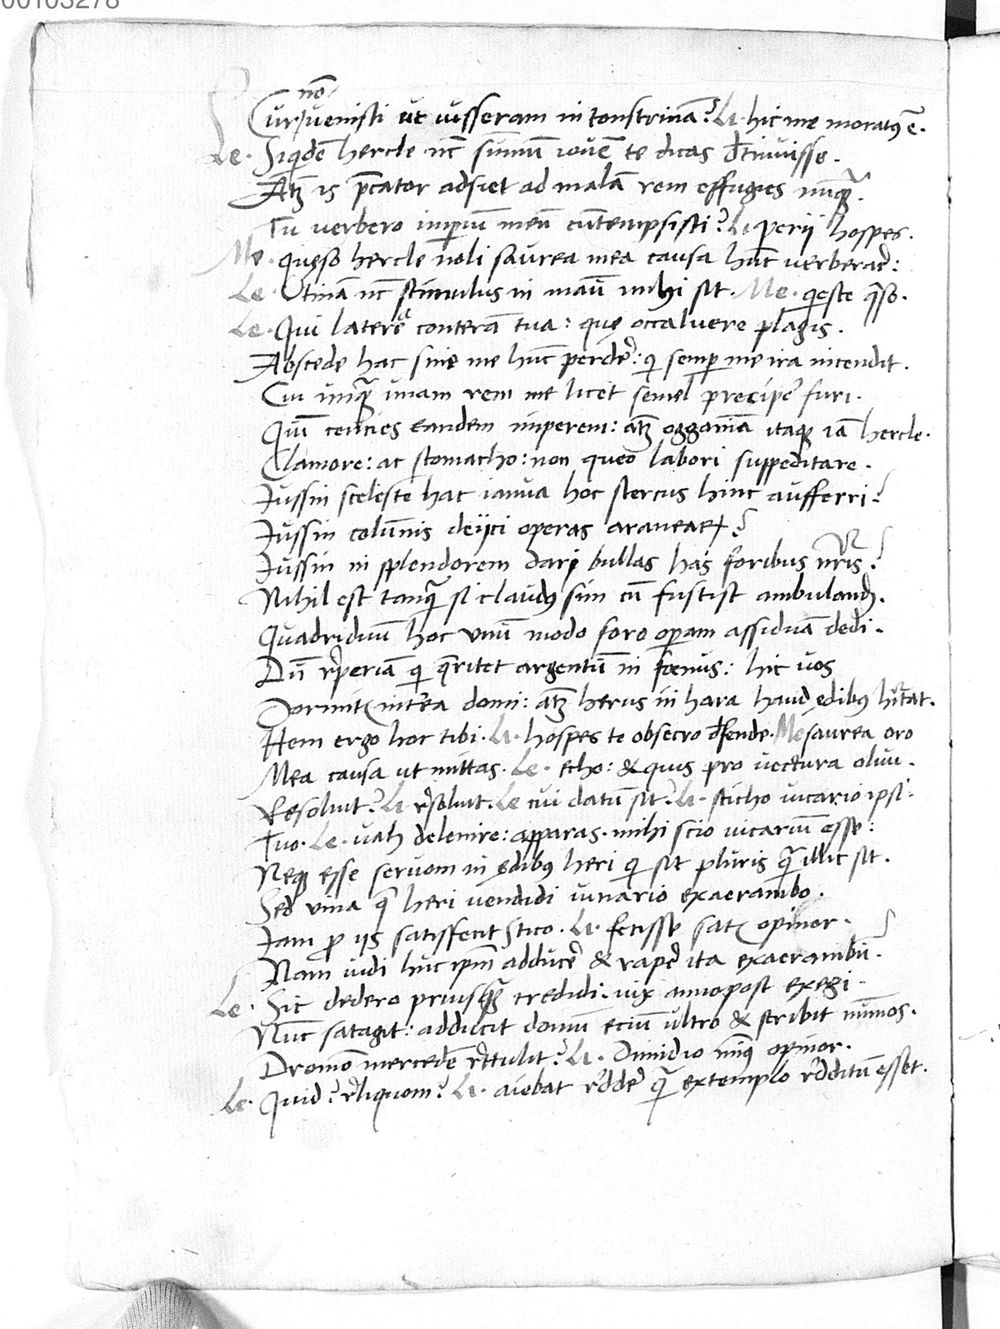 00103278
nō
Cur venisti ut iusseram in tonstrinā? Li. hic me moratꝰ ē.
Le. Siqdē hercle nc̄ sūmū iovē te dicas dtinuisse.
Atqꝫ is p̄cator adsiet ad malā rem effugies nūqꝫ.
Tu verbero imꝑiū meū cūtempsisti? Li perij hospes.
Me. quęso hercle noli saurea mea causa hūc verberare:
Le. Utinā nc̄ stimulus in manū mihi sit. Me. qesce q̄so.
Le. Qui laterē conterā tua: quę occaluere plagis.
Abscede hac sine me hūc perdere: qi semꝑ me ira incendit.
Cui unqꝫ unam rem me licet semel precipe furi.
Qui centies eandem imperem: atqꝫ ogganiā itaqꝫ iā hercle.
Clamore: ac stomacho: non queo labori suppeditare.
Jussin sceleste hac ianua hoc stercus hinc aufferri?
Jussin colūnis deijci operas aranearꝝ?
Jussin in splendorem dari bullas has foribus nr̄is?
Nihil est tanqꝫ si claudꝰ sim cū fustist ambulandū.
Quadriduū hoc unū modo foro oꝑam assiduā dedi.
Dū rꝑeriā qi q̄ritet argentū in fœnus: hic vos
Dormitis intrea domi: atqꝫ herus in hara haud ędibꝰ hītat.
Hem ergo hoc tibi. Li. hospes te obsecro dfende. Me saurea oro
Mea causa ut mittas. Le. echo: & quis pro vectura olivi.
Resolvit? Li rsolvit. Le cui datū sit? Li. sticho vicario ipsi.
Tuo. Le. vah delenire: apparas. mihi scio vicariū esse:
Neqꝫ esse servom in ędibꝰ heri qi sit pluris qꝫ illic sit.
Sed vina q̄ heri vendidi vinario exaerambo.
Jam ꝓ iis satisfecit stico. Li. fecisse satis opinor.
Nam vidi huc ip̄m adducere & rapere ita exaerambū?
Le. Sic dedero priusqꝫ credidi. vix anno post exegi.
Nūc satagit: adducit domū eciū ultro & scribit nūmos.
Dromo mercedē rettulit? Li. Dimidio minꝰ opinor.
Le. Quid? reliquom? Li. aiebat reddere qꝫ extemplo redditū esset.